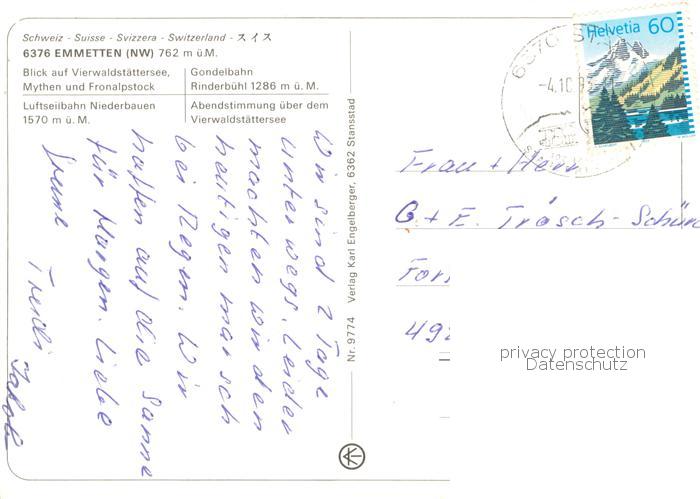 Schweiz - Suisse - Svizzera - Switzerland - スイス
6376 EMMETTEN (NW) 762 m ü.M.
Blick auf Vierwaldstättersee,
Mythen und Fronalpstock
Gondelbahn
Rinderbühl 1286 m ü. M.
Luftseilbahn Niederbauen
1570 m ü. M.
Abendstimmung über dem
Vierwaldstättersee
Wir sind 2 Tage
unterwegs. Leider
machten wir den
heutigen marsch
bei Regen. Wir
hoffen auf die Sonne
für Morgen. Liebe
Trudi
Jakob
Nr. 9774 Verlag Karl Engelberger, 6362 Stansstad
Helvetia 60
6376
-4.10.9
Frau + Herr
G. + E. Trösch-Schür
For
49
privacy protection
Datenschutz